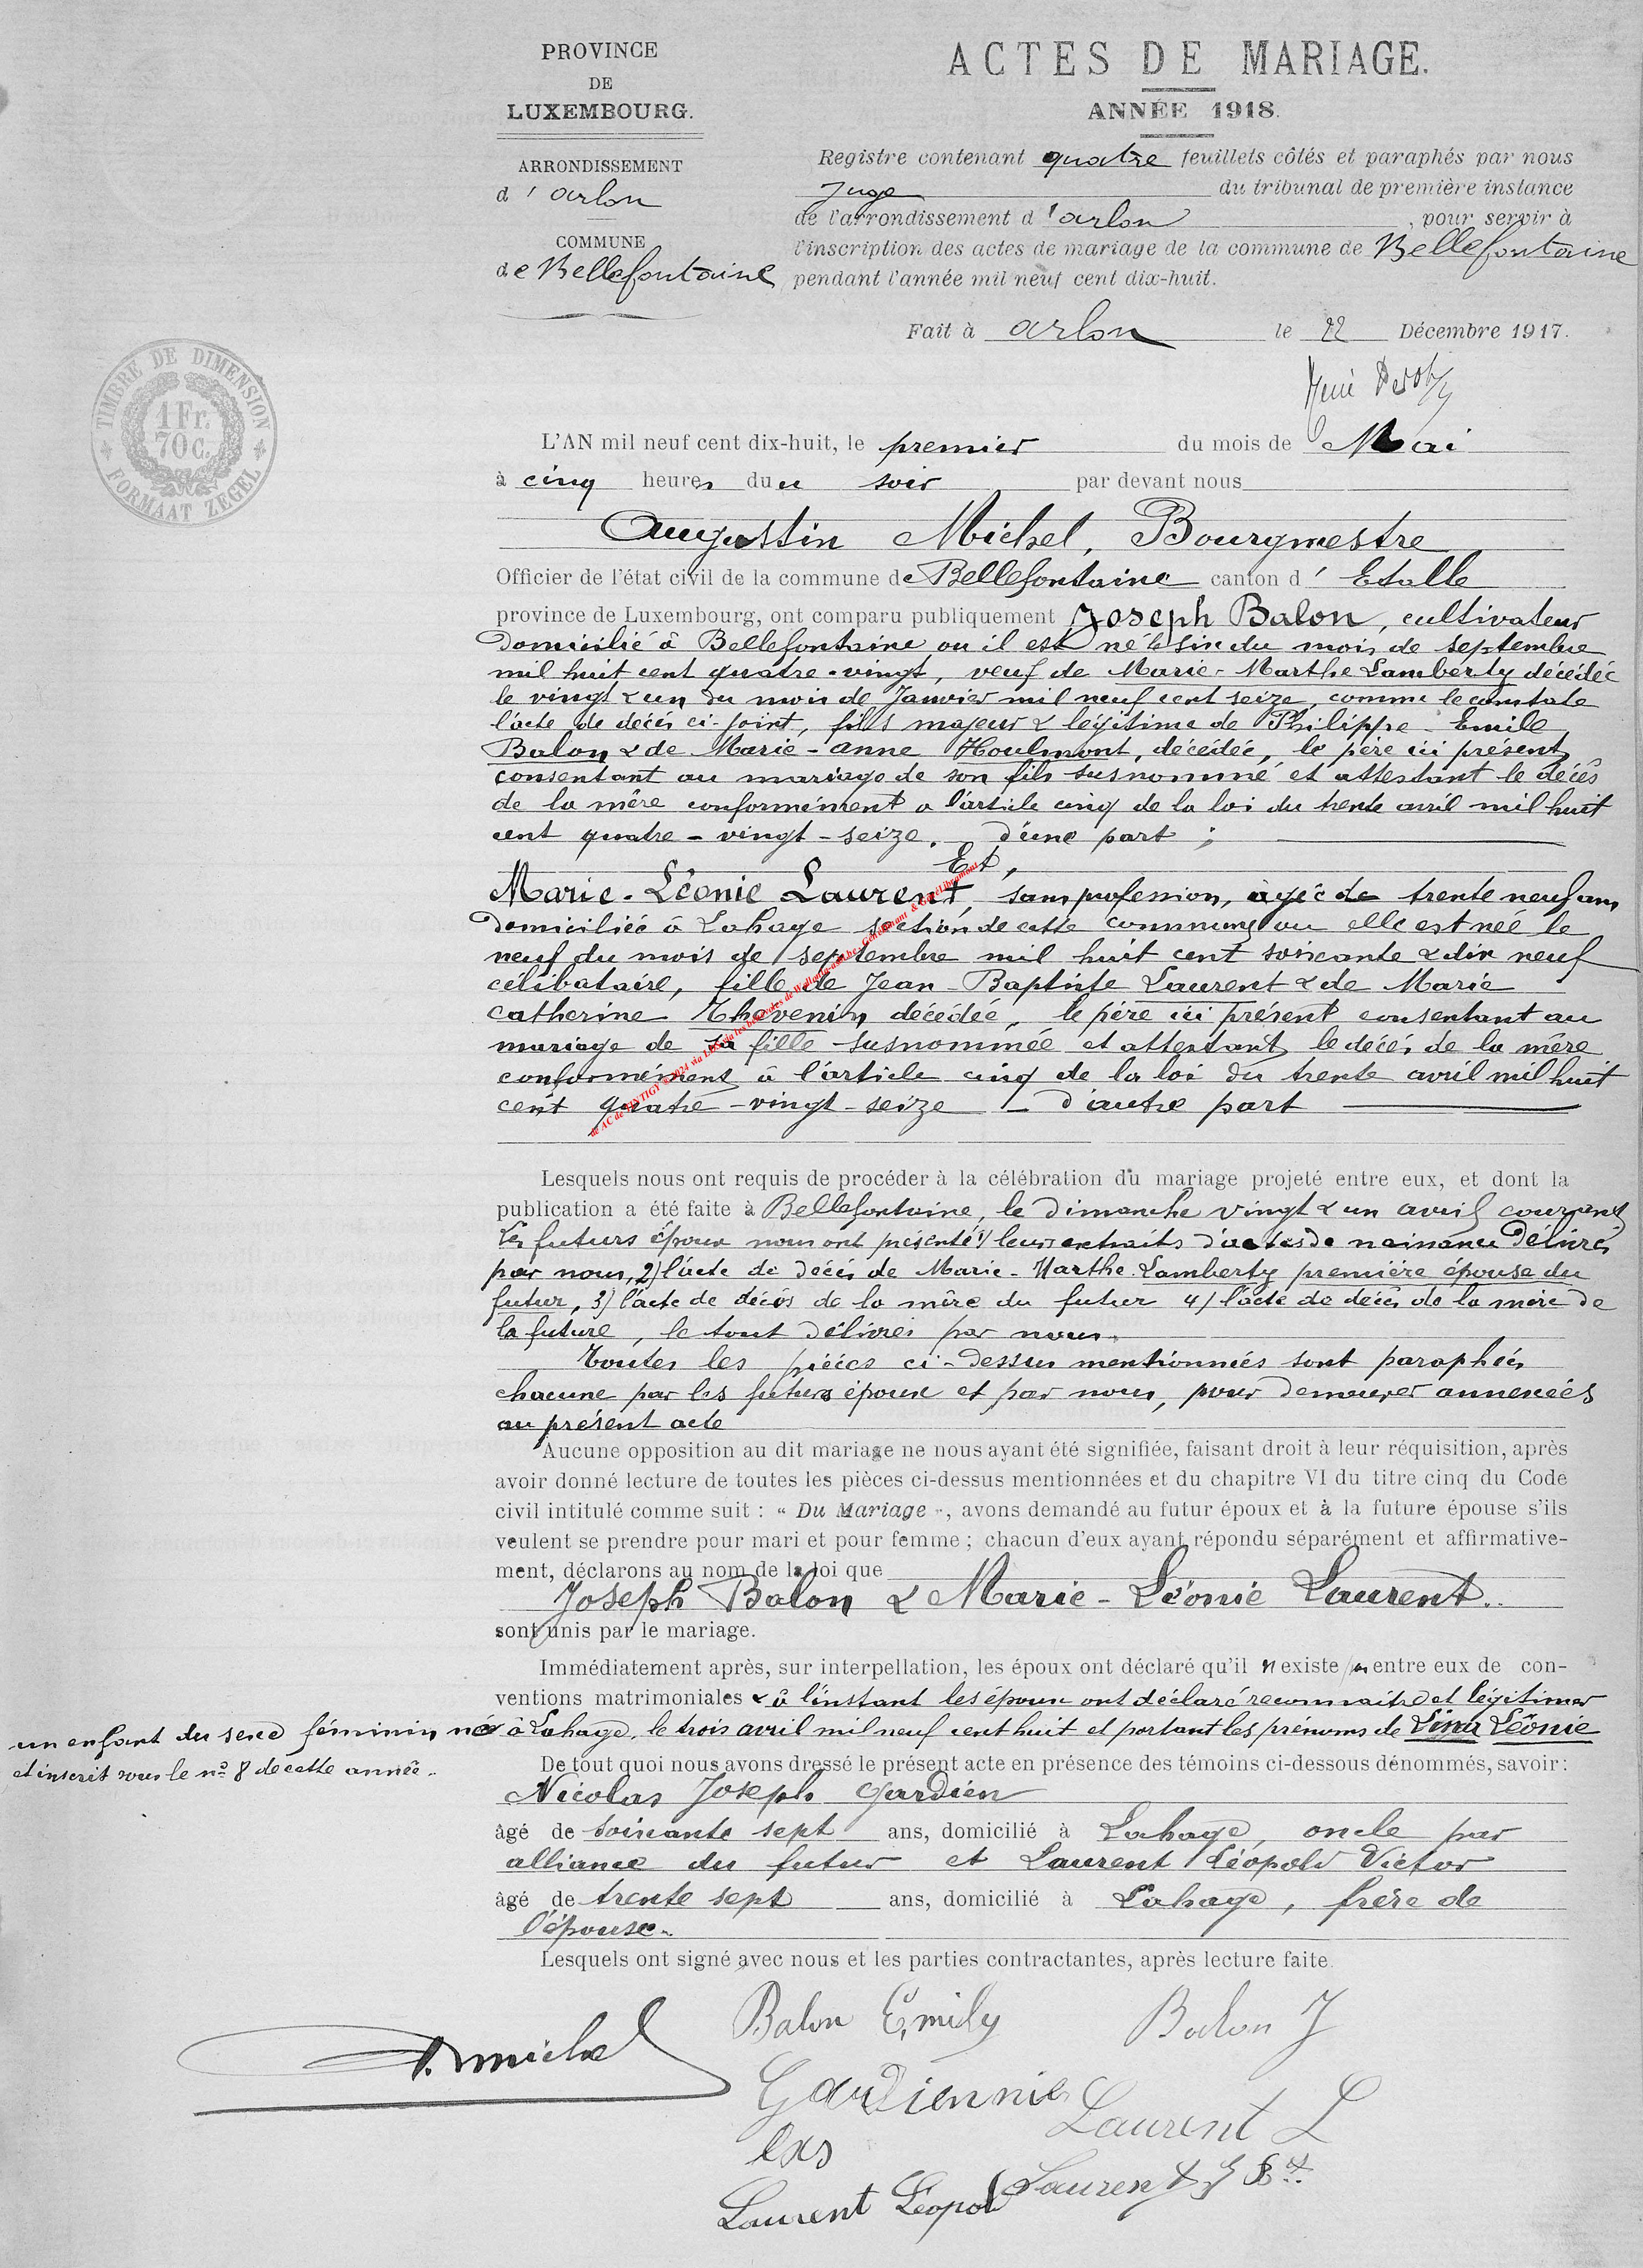 PROVINCE
DE
LUXEMBOURG.
ARRONDISSEMENT
d'arlon
COMMUNE
de Bellefontaine
ACTES DE MARIAGE.
ANNÉE 1918.
Registre contenant quatre feuillets côtés et paraphés par nous
Juge du tribunal de première instance
de l'arrondissement d'arlon, pour servir à
l'inscription des actes de mariage de la commune de Bellefontaine
pendant l'année mil neuf cent dix-huit.
Fait à arlon le 22 Décembre 1917.
TIMBRE DE DIMENSION
1 Fr.
70 c.
FORMAAT ZEGEL
L'AN mil neuf cent dix-huit, le premier du mois de Mai
à cinq heures du soir par devant nous
Augustin Michel, Bourgmestre
Officier de l'état civil de la commune de Bellefontaine canton d'Etalle
province de Luxembourg, ont comparu publiquement Joseph Balon, cultivateur
domicilié à Bellefontaine ou il est né le six du mois de septembre
mil huit cent quatre-vingt, veuf de Marie-Marthe Lamberty décédée
le vingt & un du mois de Janvier mil neuf cent seize, comme le constate
l'acte de décès ci-joint, fils majeur & légitime de Philippe-Emile
Balon & de Marie-anne Houlmont, décédée, le père ici présent
consentant au mariage de son fils susnommé et attestant le décès
de la mère conformément a l'article cinq de la loi du trente avril mil huit
cent quatre-vingt-seize. d'une part ;
Et,
Marie-Léonie Laurent, sans profession, agée de trente neuf ans
domiciliée à Lahage section de cette commune ou elle est née le
neuf du mois de septembre mil huit cent soixante & dix neuf
célibataire, fille de Jean-Baptiste Laurent & de Marie
catherine Thevenin, décédée, le père ici présent consentant au
mariage de sa fille susnommée et attestant le décès de la mère
conformément à l'article cinq de la loi du trente avril mil huit
cent quatre-vingt-seize — d'autre part
Lesquels nous ont requis de procéder à la célébration du mariage projeté entre eux, et dont la
publication a été faite à Bellefontaine, le dimanche vingt & un avril courant
Les futurs époux nous ont présenté 1) leurs extraits d'actes de naissance délivrés
par nous, 2) l'acte de décès de Marie-Marthe Lamberty première épouse du
futur, 3) l'acte de décès de la mère du futur 4) l'acte de décès de la mère de
la future, le tout délivrés par nous.
Toutes les pièces ci-dessus mentionnées sont paraphées
chacune par les futurs époux et par nous, pour demeurer annexées
au présent acte
Aucune opposition au dit mariage ne nous ayant été signifiée, faisant droit à leur réquisition, après
avoir donné lecture de toutes les pièces ci-dessus mentionnées et du chapitre VI du titre cinq du Code
civil intitulé comme suit : « Du Mariage », avons demandé au futur époux et à la future épouse s'ils
veulent se prendre pour mari et pour femme ; chacun d'eux ayant répondu séparément et affirmative-
ment, déclarons au nom de la loi que
Joseph Balon & Marie-Léonie Laurent.
sont unis par le mariage.
Immédiatement après, sur interpellation, les époux ont déclaré qu'il n'existe pas entre eux de con-
ventions matrimoniales & à l'instant les époux ont déclaré reconnaître et légitimer
un enfant du sexe féminin née à Lahage, le trois avril mil neuf cent huit et portant les prénoms de Lina Léonie
et inscrit sous le n° 8 de cette année.
De tout quoi nous avons dressé le présent acte en présence des témoins ci-dessous dénommés, savoir :
Nicolas Joseph Gardien
âgé de soixante sept ans, domicilié à Lahage, oncle par
alliance du futur et Laurent Léopold Victor
âgé de trente sept ans, domicilié à Lahage, frère de
l'épouse.
Lesquels ont signé avec nous et les parties contractantes, après lecture faite.
Balon Emily
Balon J
A. Michel
Gardien nic
las
Laurent L
Laurent J Bte
Laurent Léopold